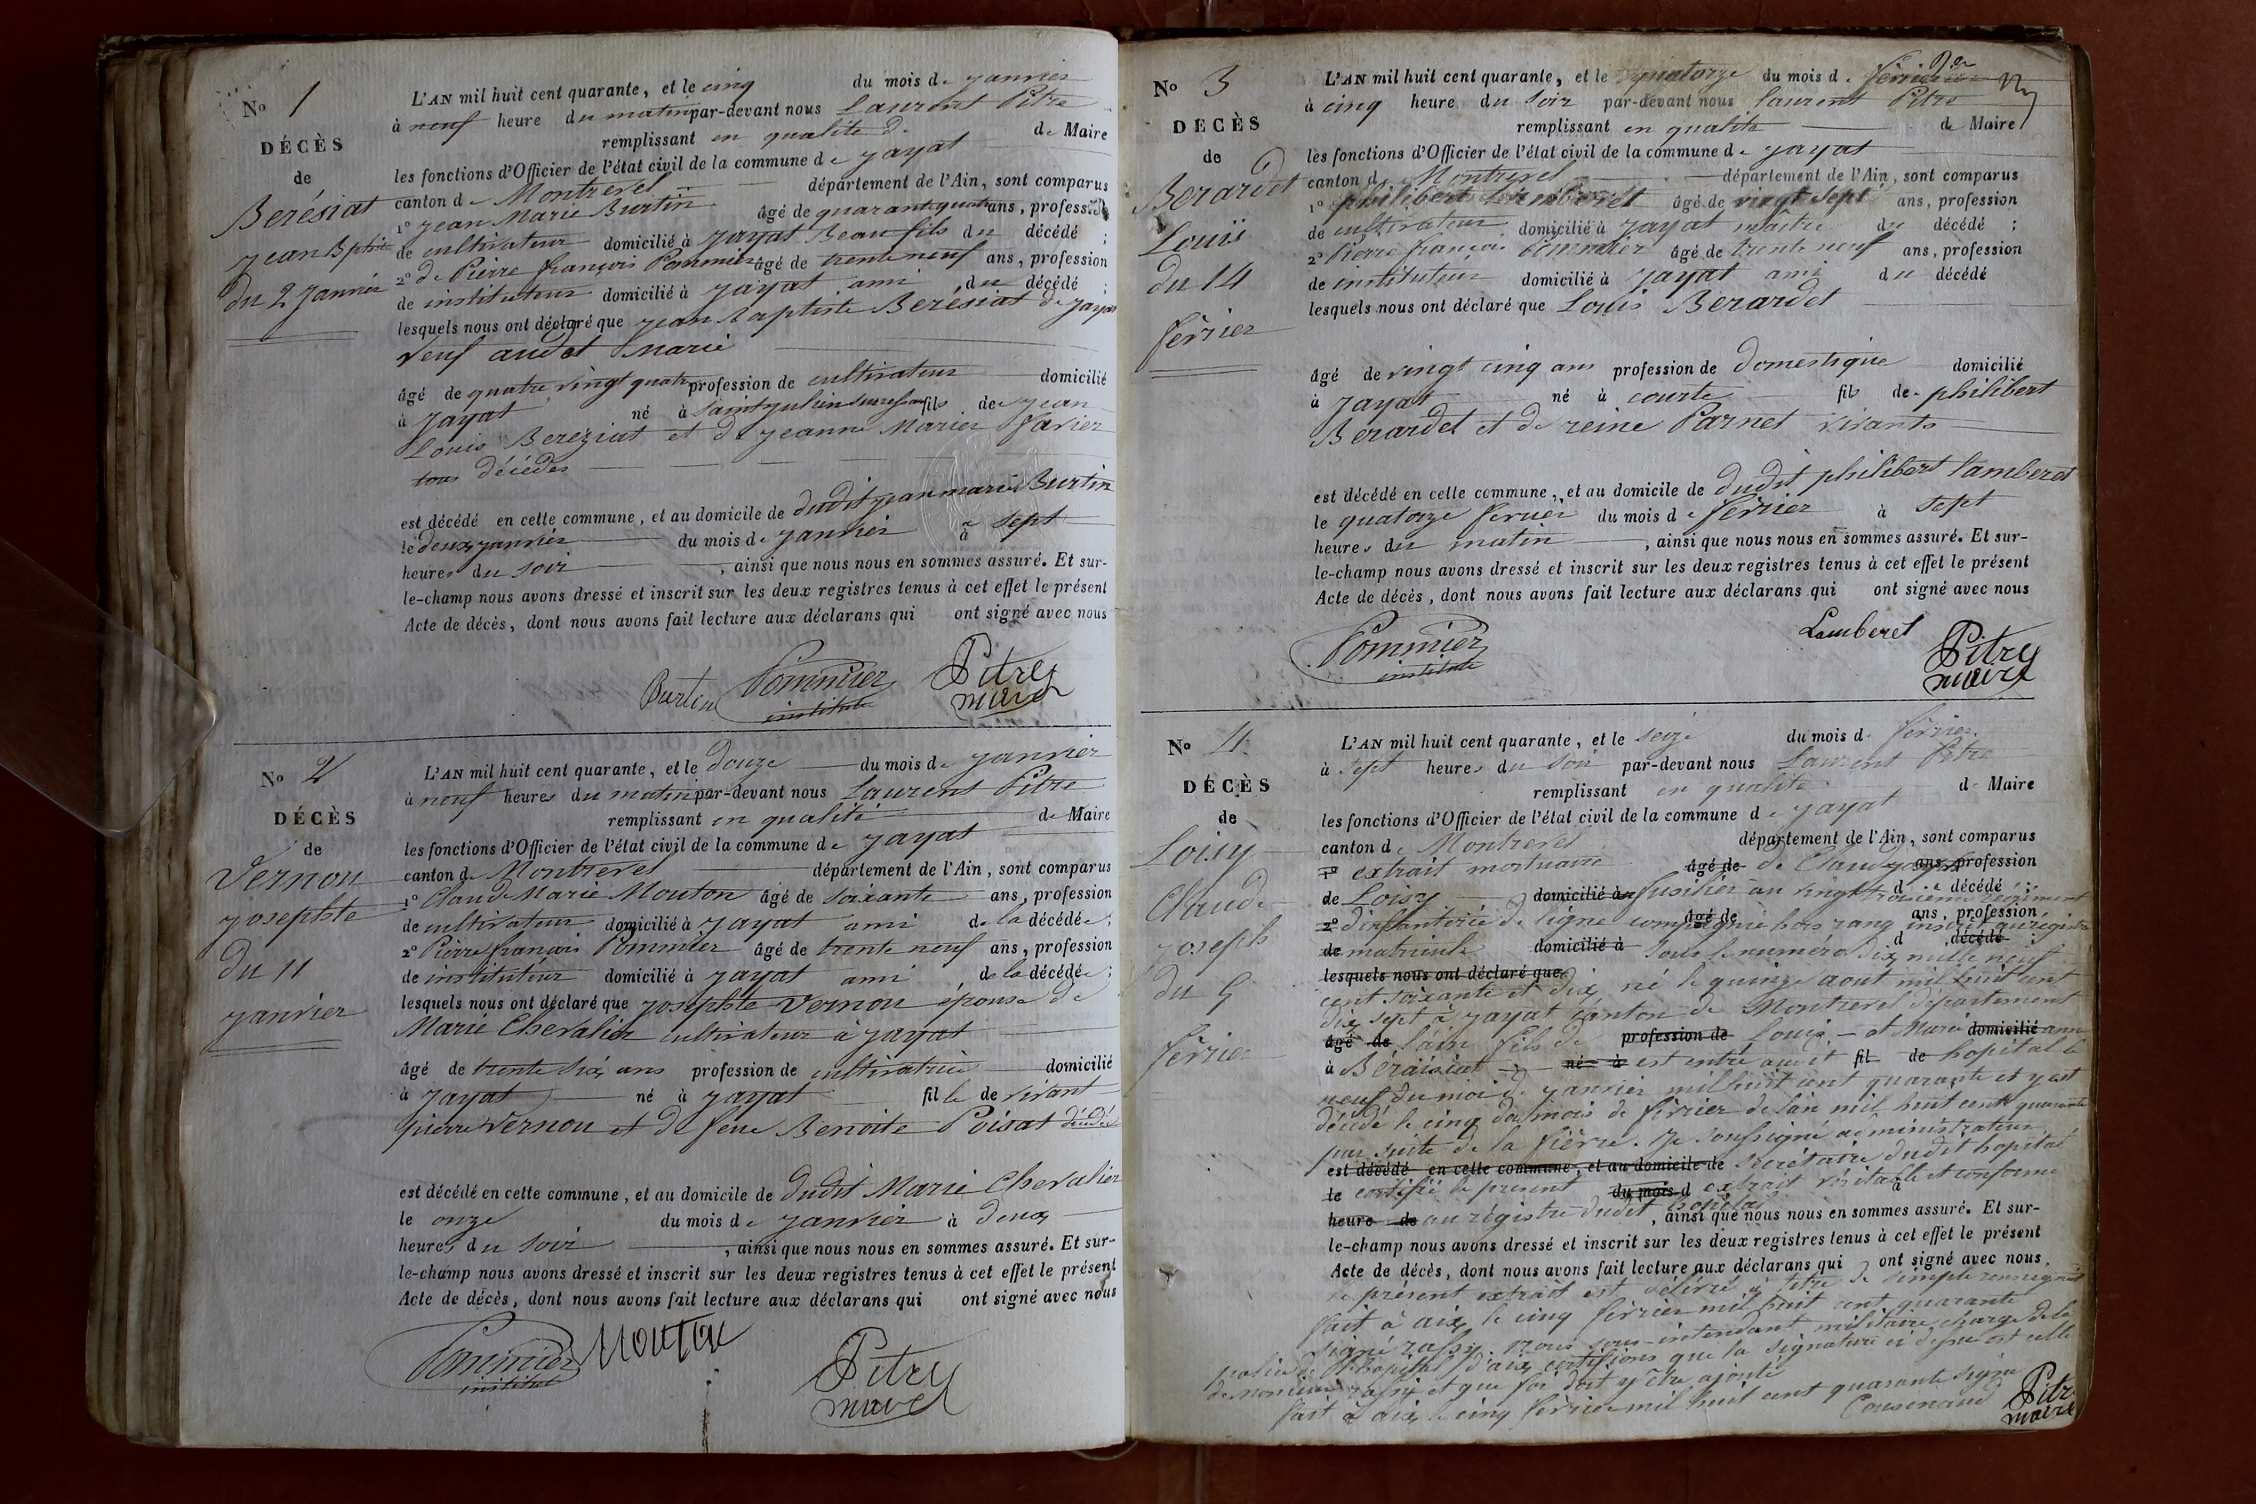 N° 1
DÉCÈS
de
Berésiat
jean Bptiste
du 2 Janvier
L'AN mil huit cent quarante, et le cinq du mois de janvier
à neuf heure du matin par-devant nous Laurent Pitre
remplissant en qualité d. de Maire
les fonctions d'Officier de l'état civil de la commune de jayat
canton de Montrevel département de l'Ain, sont comparus
1° jean Marie Burtin âgé de quarante quatre ans, profession
de cultivateur domicilié à jayat Beau fils du décédé ;
2° de Pierre françois Pommier âgé de trente neuf ans, profession
de instituteur domicilié à jayat ami du décédé ;
lesquels nous ont déclaré que jean baptiste Berésiat de jayat
veuf audet Marie
âgé de quatre vingt quatre profession de cultivateur domicilié
à jayat né à Saint julien sur ressouse fils de jean
Louis Bereziat et de jeanne Marier favier
tous décédés
est décédé en cette commune, et au domicile de dudit jean marie Burtin
le deux janvier du mois de janvier à sept
heures du soir , ainsi que nous nous en sommes assuré. Et sur-
le-champ nous avons dressé et inscrit sur les deux registres tenus à cet effet le présent
Acte de décès, dont nous avons fait lecture aux déclarans qui ont signé avec nous
Burtin Pommier Pitre
institut maire
N° 2
DÉCÈS
de
Vernou
josephte
du 11
janvier
L'AN mil huit cent quarante, et le douze du mois de janvier
à neuf heures du matin par-devant nous Laurent Pitre
remplissant en qualité de Maire
les fonctions d'Officier de l'état civil de la commune de jayat
canton de Montrevel département de l'Ain, sont comparus
1° Claude Marie Mouton âgé de soixante ans, profession
de cultivateur domicilié à jayat ami de la décédée ;
2° Pierre françois Pommier âgé de trente neuf ans, profession
de instituteur domicilié à jayat ami de la décédée ;
lesquels nous ont déclaré que josephte Vernou épouse de
Marie Chevalier cultivateur à jayat
âgé de trente six ans profession de cultivatrice domicilié
à jayat né à jayat fille de vivant
pierre Vernou et de feue Benoite Poisat décédée
est décédé en cette commune, et au domicile de dudit Marie Chevalier
le onze du mois de janvier à deux
heures du soir , ainsi que nous nous en sommes assuré. Et sur-
le-champ nous avons dressé et inscrit sur les deux registres tenus à cet effet le présent
Acte de décès, dont nous avons fait lecture aux déclarans qui ont signé avec nous
Pommier Mouton Pitre
institut maire
N° 3
DÉCÈS
de
Berardet
Louis
du 14
février
L'AN mil huit cent quarante, et le quatorze du mois d. février
à cinq heure du soir par-devant nous laurent Pitre
remplissant en qualité de Maire
les fonctions d'Officier de l'état civil de la commune de jayat
canton de Montrevel département de l'Ain, sont comparus
1° philibert lamberet âgé de vingt sept ans, profession
de cultivateur domicilié à jayat maître du décédé ;
2° Pierre françois Pommier âgé de trente neuf ans, profession
de instituteur domicilié à jayat ami du décédé
lesquels nous ont déclaré que Louis Berardet
âgé de vingt cinq ans profession de domestique domicilié
à jayat né à courte fils de philibert
Berardet et de reine Parnet vivants
est décédé en cette commune, et au domicile de dudit philibert lamberet
le quatorze fervier du mois de février à sept
heures du matin , ainsi que nous nous en sommes assuré. Et sur-
le-champ nous avons dressé et inscrit sur les deux registres tenus à cet effet le présent
Acte de décès, dont nous avons fait lecture aux déclarans qui ont signé avec nous
Pommier Lamberet Pitre
institute maire
N° 4
DÉCÈS
de
Loisy
Claude
joseph
du 5
février
L'AN mil huit cent quarante, et le seize du mois d. février
à sept heures du soir par-devant nous Laurent Pitre
remplissant en qualité de Maire
les fonctions d'Officier de l'état civil de la commune de jayat
canton de Montrevel département de l'Ain, sont comparus
1° extrait mortuaire âgé de de Claude joseph ans, profession
de Loisy domicilié à fusilier au vingt troisième régiment d décédé ;
2° d'infanterie de ligne compagnie hors rang inscrit au régistre âgé de ans, profession
de matricule domicilié à sous le numéro dix mille neuf d décédé ;
lesquels nous ont déclaré que
cent soixante et dix né le quinze aout mil huit cent
dix sept à jayat canton de Montrevel département
âgé de l'ain fils de profession de Louis et Marie domicilié anne
à Béraisiat né à est entré audit fil de hopital le
neuf du mois de janvier mil huit cent quarante et y est
décédé le cinq du mois de février de l'an mil huit cent quarante
par suite de la fièvre. Je soussigné administrateur
est décédé en cette commune, et au domicile de secrétaire dudit hopital
le certifié le présent du mois d extrait véritable et conforme à
heure de au régistre dudit hopital , ainsi que nous nous en sommes assuré. Et sur-
le-champ nous avons dressé et inscrit sur les deux registres tenus à cet effet le présent
Acte de décès, dont nous avons fait lecture aux déclarans qui ont signé avec nous.
le présent extrait est délivré à titre de simple
fait à aix le cinq février mil huit cent quarante
signé rassy. Nous sous-intendant militaire chargé de la
police de l'hopital d'aix certifions que la signature ci dessus est celle
de rassy et que foi doit y être ajouté
fait à aix le cinq février mil huit cent quarante signé
Pitre
maire